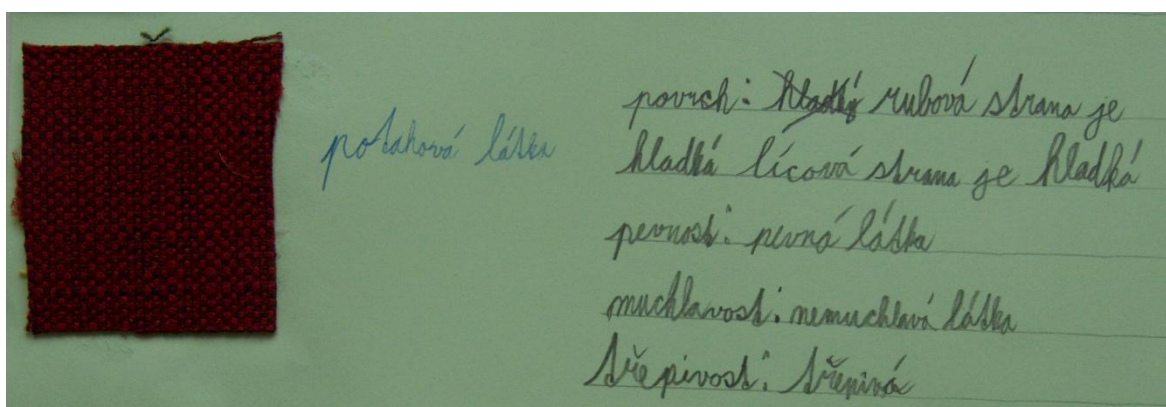 potahová látka
povrch: hladký rubová strana je
hladká lícová strana je hladká
pevnost: pevná látka
muchlavost: nemuchlavá látka
třepivost: třepivá